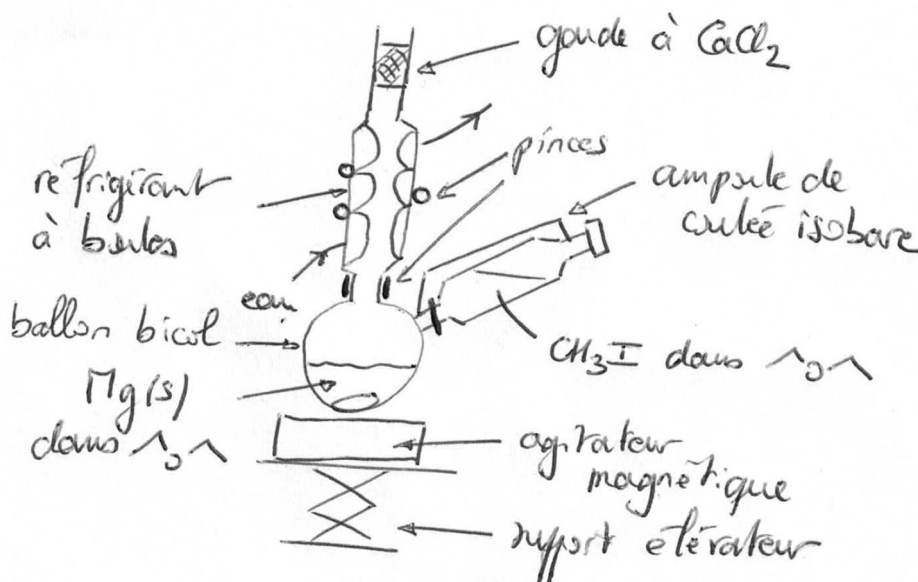 garde à CaCl2
pinces
réfrigérant
à boules
ampoule de
coulée isobare
eau
ballon bicol
CH3I dans
Mg(s)
dans
agitateur
magnétique
support élévateur